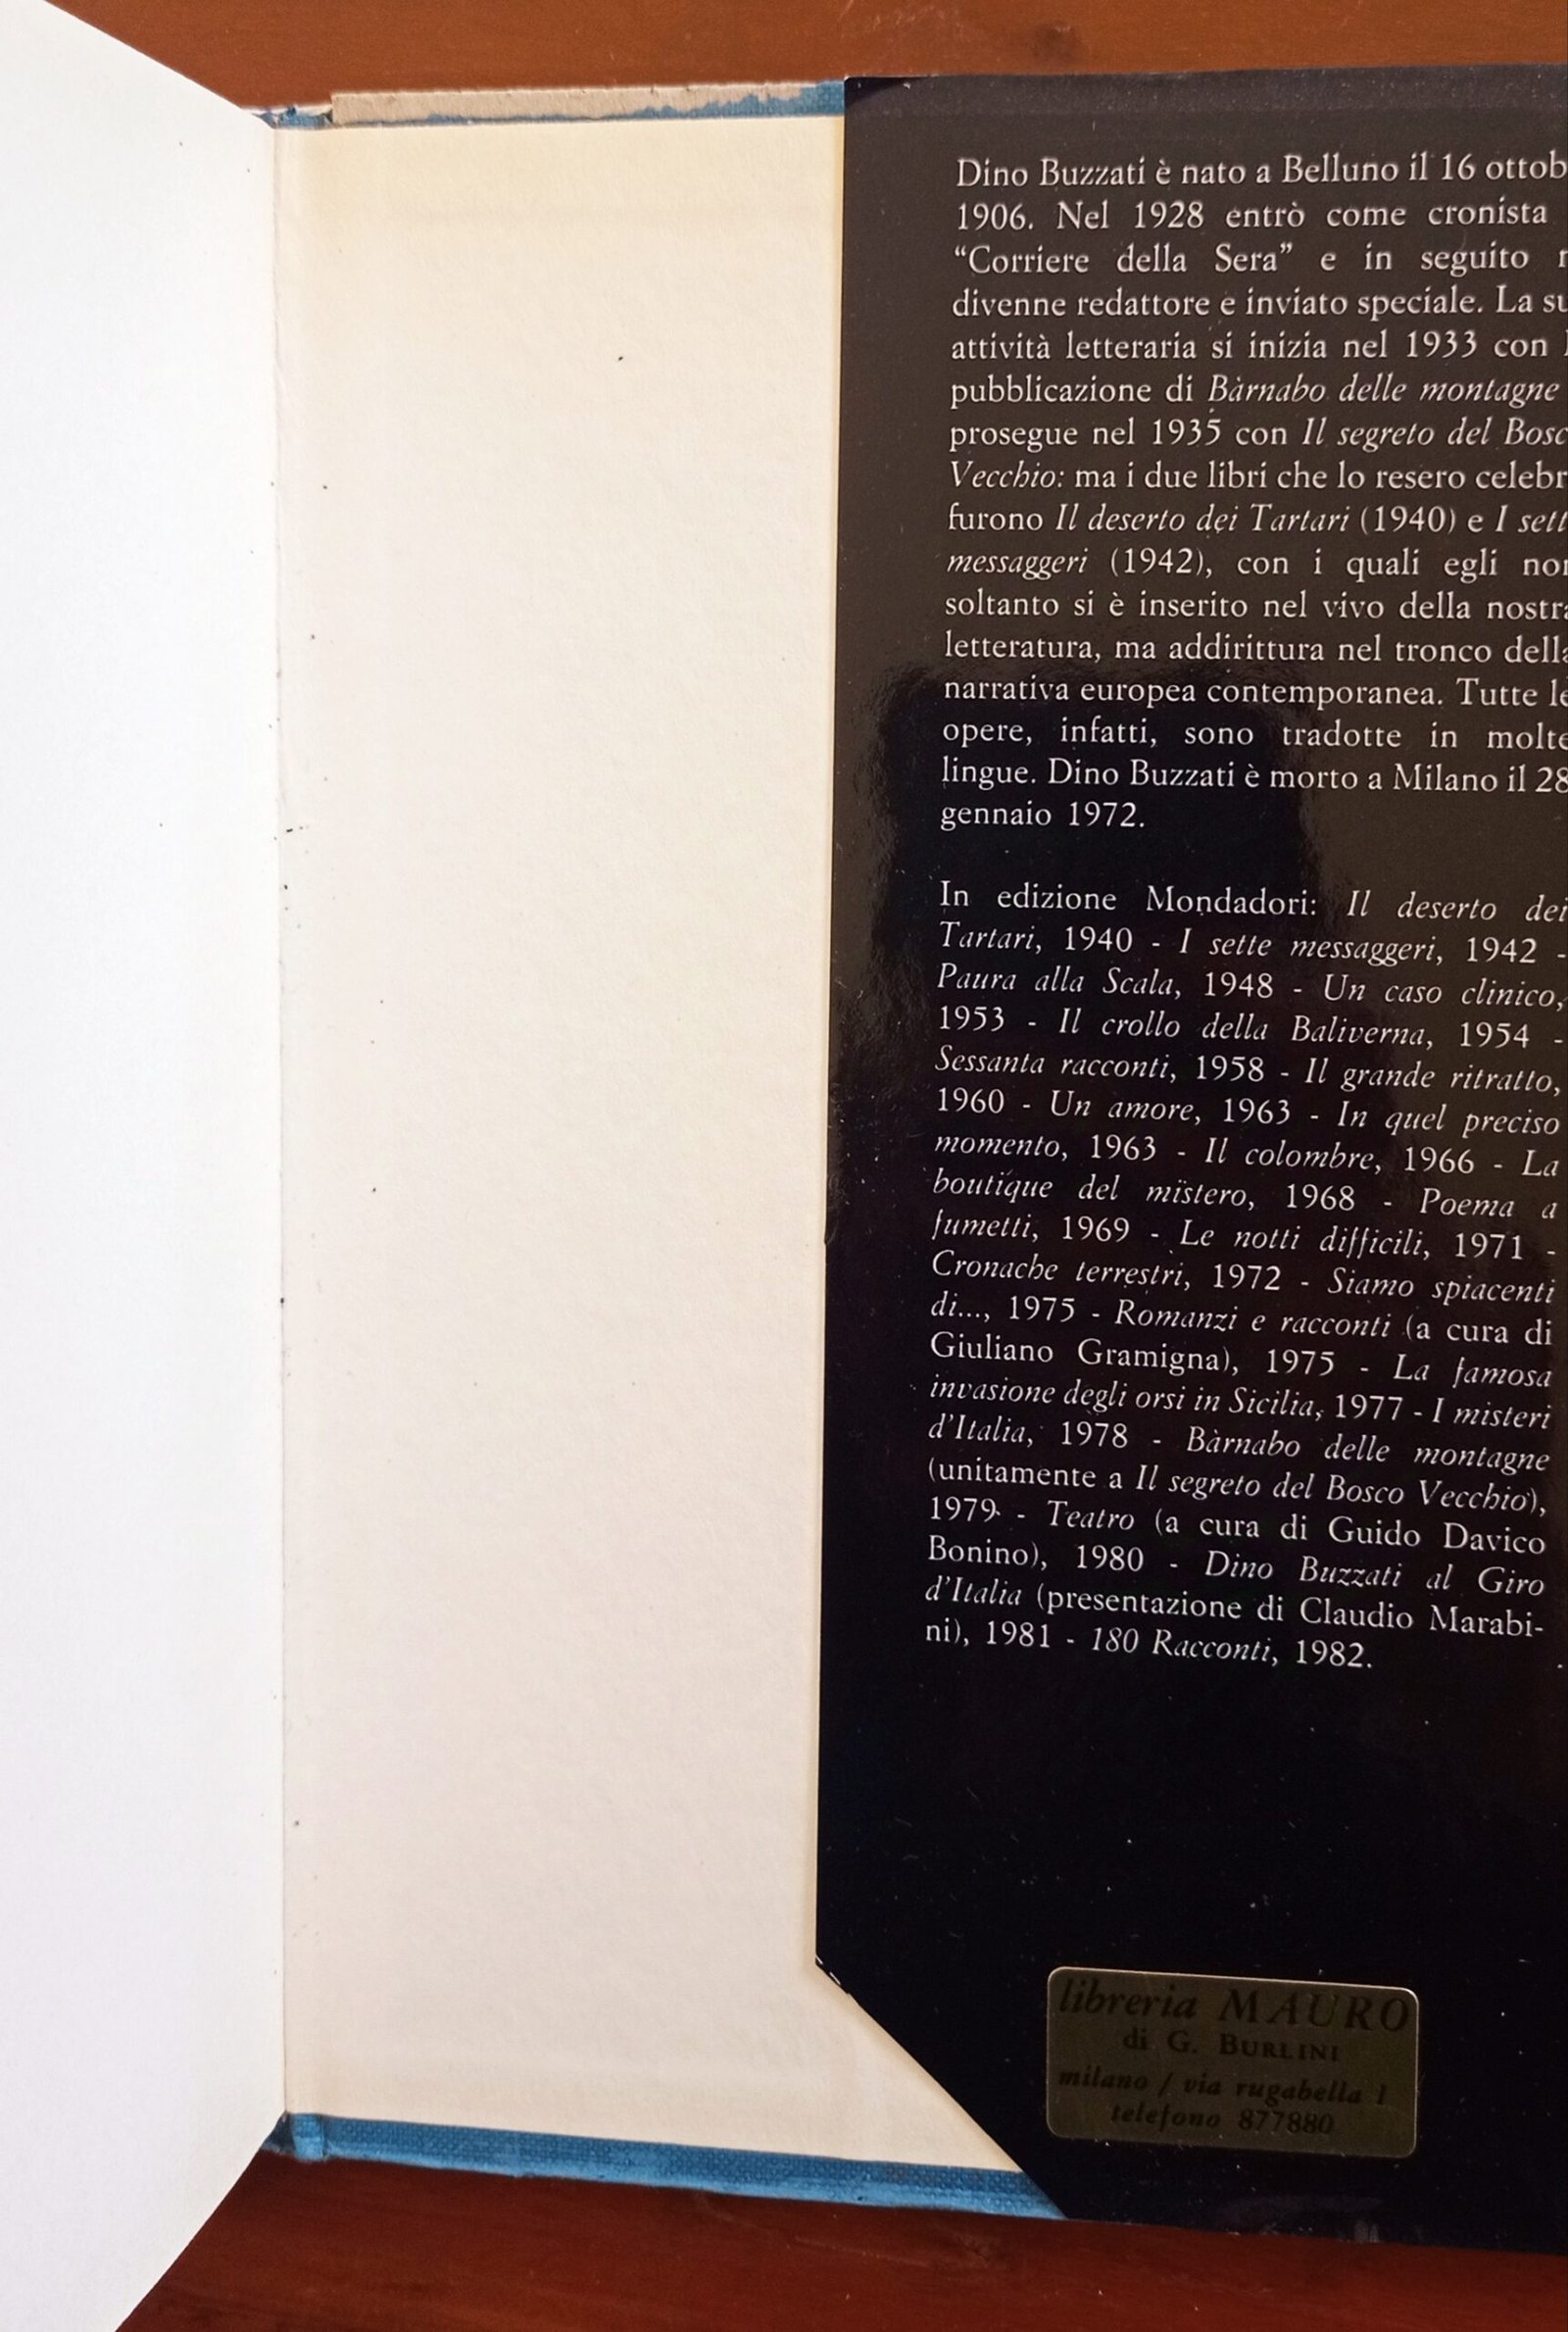 Dino Buzzati è nato a Belluno il 16 ottob
1906. Nel 1928 entrò come cronista
“Corriere della Sera” e in seguito
divenne redattore e inviato speciale. La su
attività letteraria si inizia nel 1933 con
pubblicazione di Bàrnabo delle montagne
prosegue nel 1935 con Il segreto del Bosc
Vecchio: ma i due libri che lo resero celebr
furono Il deserto dei Tartari (1940) e I sett
messaggeri (1942), con i quali egli non
soltanto si è inserito nel vivo della nostra
letteratura, ma addirittura nel tronco della
narrativa europea contemporanea. Tutte le
opere, infatti, sono tradotte in molte
lingue. Dino Buzzati è morto a Milano il 28
gennaio 1972.
In edizione Mondadori: Il deserto dei
Tartari, 1940 - I sette messaggeri, 1942 -
Paura alla Scala, 1948 - Un caso clinico,
1953 - Il crollo della Baliverna, 1954 -
Sessanta racconti, 1958 - Il grande ritratto,
1960 - Un amore, 1963 - In quel preciso
momento, 1963 - Il colombre, 1966 - La
boutique del mistero, 1968 - Poema a
fumetti, 1969 - Le notti difficili, 1971 -
Cronache terrestri, 1972 - Siamo spiacenti
di..., 1975 - Romanzi e racconti (a cura di
Giuliano Gramigna), 1975 - La famosa
invasione degli orsi in Sicilia, 1977 - I misteri
d'Italia, 1978 - Bàrnabo delle montagne
(unitamente a Il segreto del Bosco Vecchio),
1979 - Teatro (a cura di Guido Davico
Bonino), 1980 - Dino Buzzati al Giro
d'Italia (presentazione di Claudio Marabi-
ni), 1981 - 180 Racconti, 1982.
libreria MAURO
di G. BURLINI
milano / via rugabella 1
telefono 877880